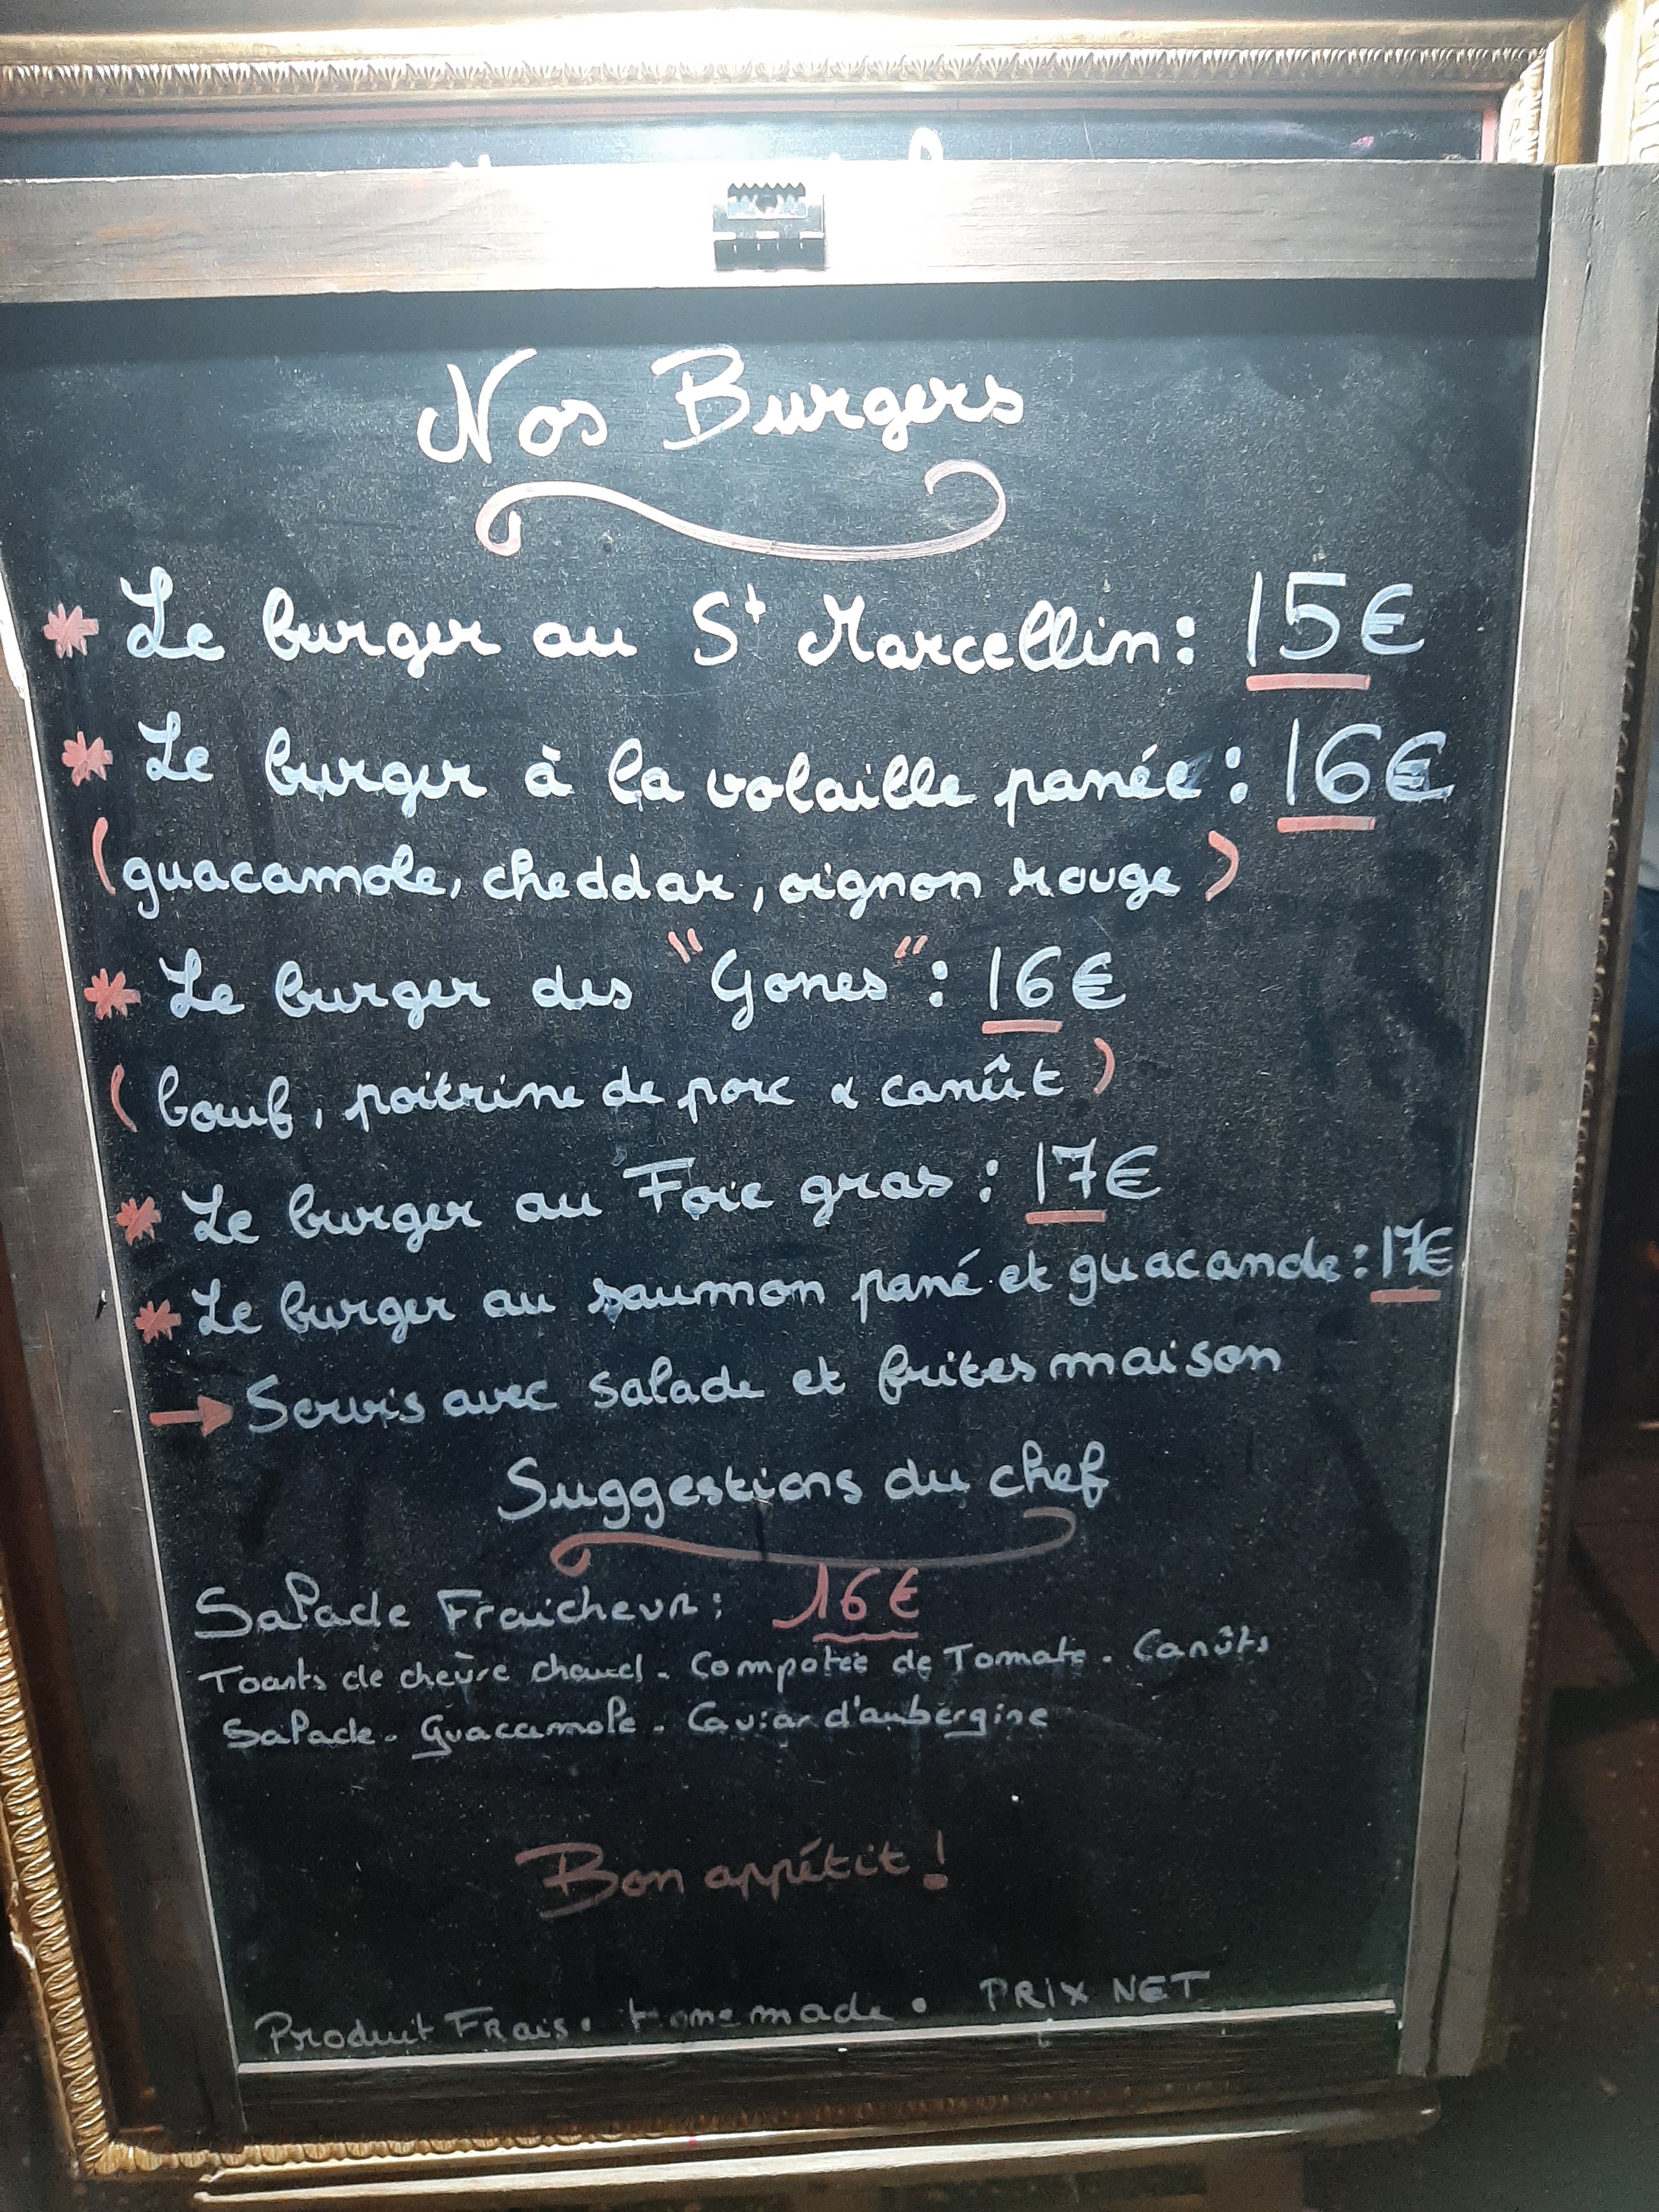 Nos Burgers
* Le burger au St Marcellin : 15€
* Le burger à la volaille panée : 16€
(guacamole, cheddar, oignon rouge)
* Le burger des "Gones" : 16€
(bœuf, poitrine de porc & canût)
* Le burger au Foie gras : 17€
* Le burger au saumon pané et guacamole : 17€
→ Servis avec salade et frites maison
Suggestions du chef
Salade Fraicheur : 16€
Toasts de chèvre chaud. Compotée de Tomate. Canûts
Salade. Guacamole. Caviar d'aubergine
Bon appétit !
Produit Frais. Home made. PRIX NET